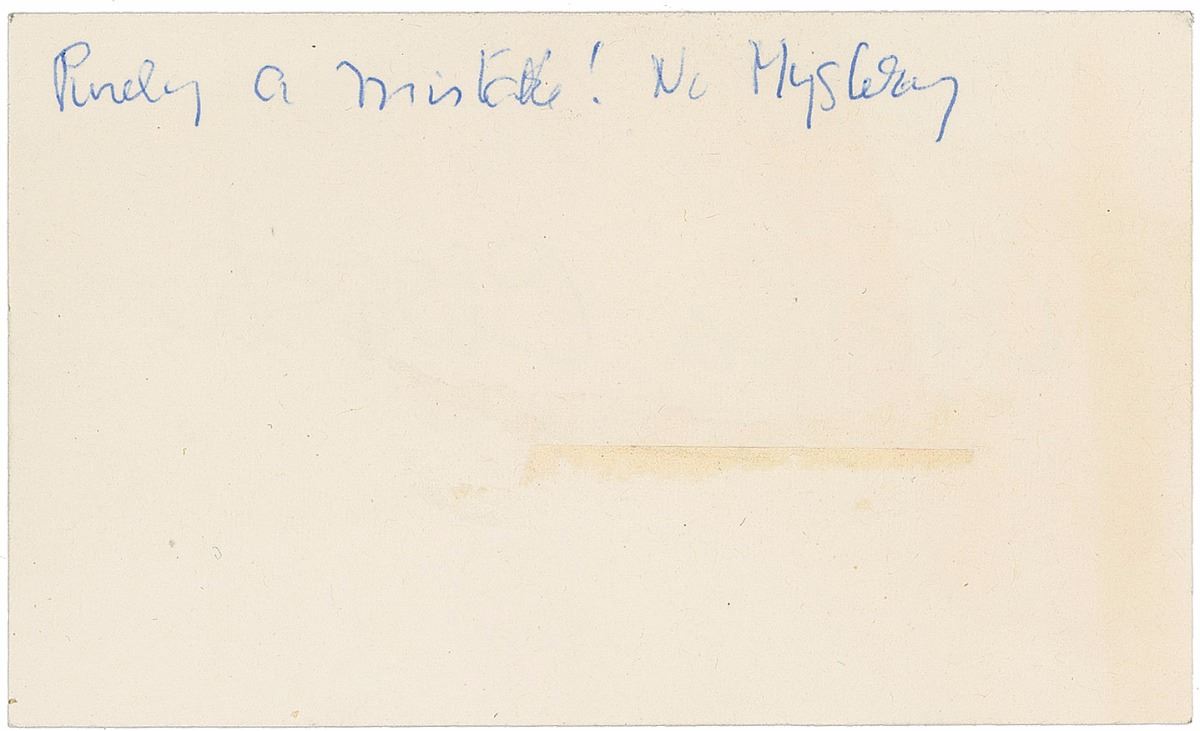 Purely a mistake! No Mystery